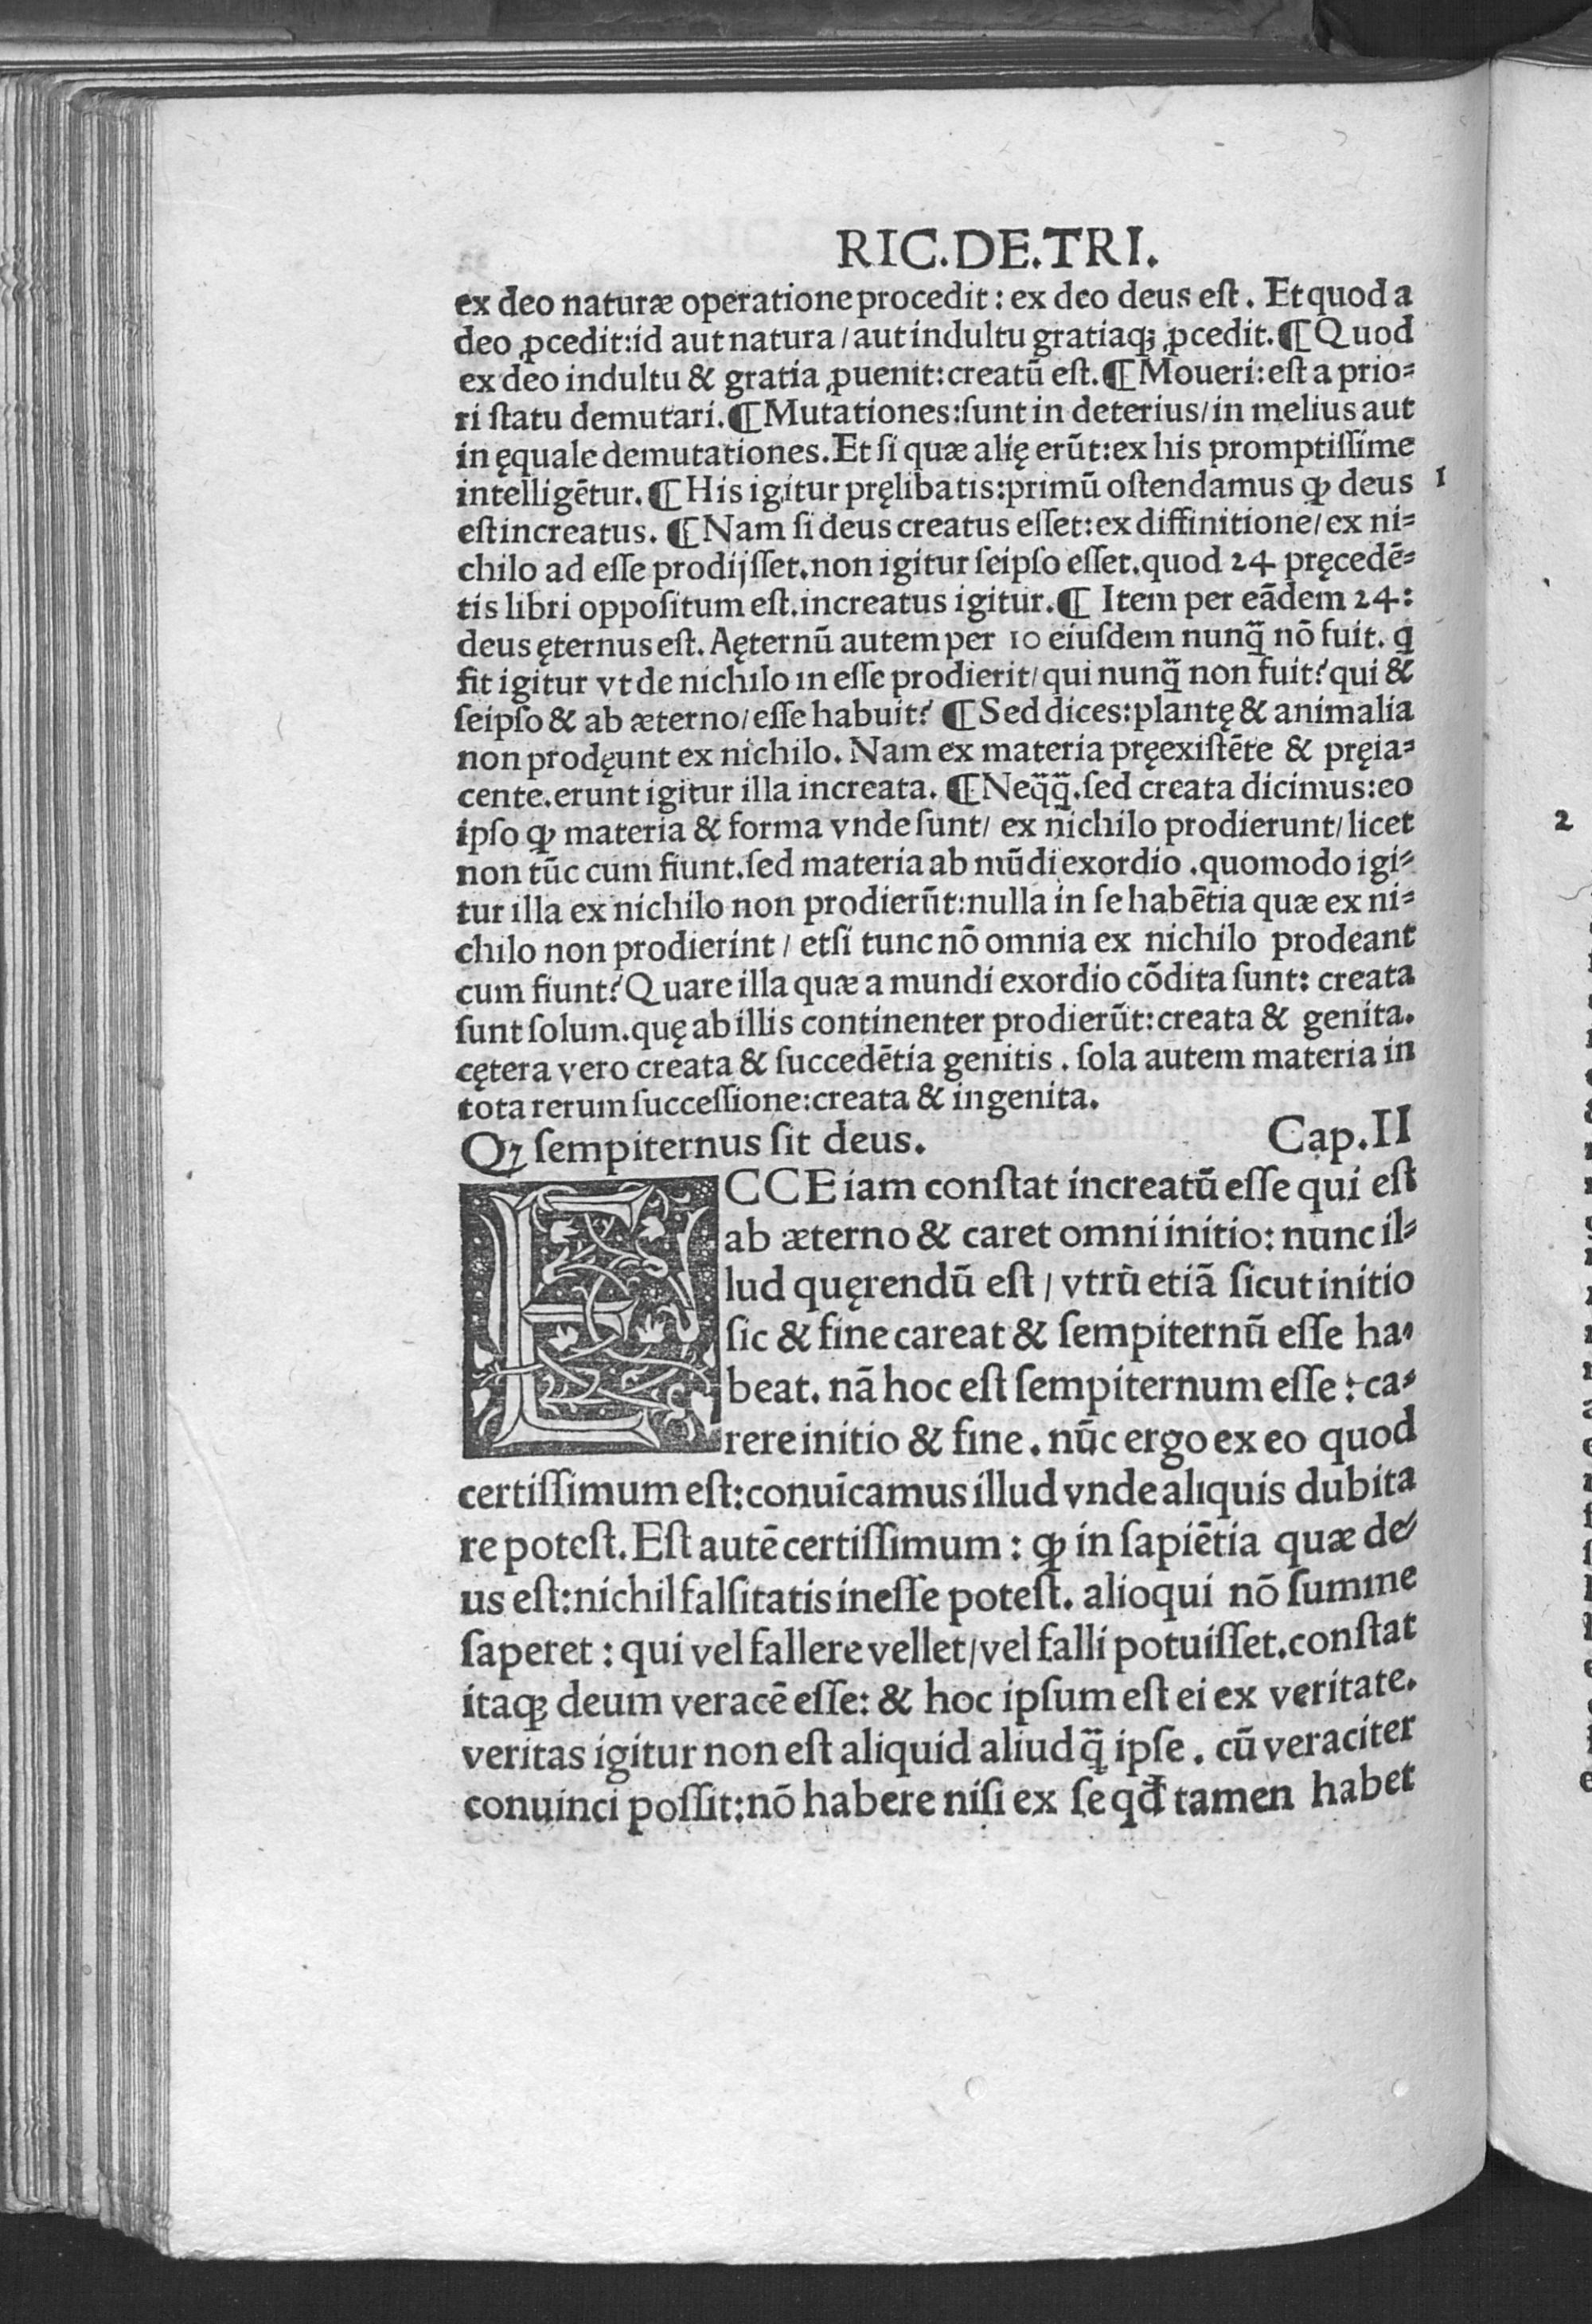 RIC.DE.TRI.
ex deo naturæ operatione procedit : ex deo deus eſt . Et quod a
deo ꝓcedit:id aut natura / aut indultu gratiaqꝫ ꝓcedit.¶Quod
ex deo indultu & gratia ꝓuenit:creatū eſt.¶Moueri:eſt a prio⸗
ri ſtatu demutari.¶Mutationes:ſunt in deterius/in melius aut
in ęquale demutationes.Et ſi quæ alię erūt:ex his promptiſſime
intelligētur.¶His igitur pręlibatis:primū oſtendamus ꝙ deus 1
eſt increatus. ¶Nam ſi deus creatus eſſet:ex diffinitione/ex ni⸗
chilo ad eſſe prodijſſet.non igitur ſeipſo eſſet.quod 24 pręcedē⸗
tis libri oppoſitum eſt.increatus igitur.¶ Item per eādem 24:
deus ęternus eſt. Aęternū autem per 10 eiuſdem nunq̄ nō fuit. q̄
fit igitur vt de nichilo in eſſe prodierit/qui nunq̄ non fuit? qui &
ſeipſo & ab æterno/eſſe habuit? ¶Sed dices:plantę & animalia
non prodęunt ex nichilo. Nam ex materia pręexiſtēte & pręia⸗
cente.erunt igitur illa increata. ¶Neq̄q̄.ſed creata dicimus:eo
ipſo ꝙ materia & forma vnde ſunt/ ex nichilo prodierunt/licet
non tūc cum fiunt.ſed materia ab mūdi exordio .quomodo igi⸗
tur illa ex nichilo non prodierūt:nulla in ſe habētia quæ ex ni⸗
chilo non prodierint / etſi tunc nō omnia ex nichilo prodeant
cum fiunt? Quare illa quæ a mundi exordio cōdita ſunt: creata
ſunt ſolum.quę ab illis continenter prodierūt:creata & genita.
cętera vero creata & ſuccedētia genitis . ſola autem materia in
tota rerum ſucceſſione:creata & ingenita.
Qꝫ ſempiternus ſit deus. Cap.II
ECCE iam conſtat increatū eſſe qui eſt
ab æterno & caret omni initio: nunc il⸗
lud quęrendū eſt / vtrū etiā ſicut initio
ſic & fine careat & ſempiternū eſſe ha⸗
beat. nā hoc eſt ſempiternum eſſe : ca⸗
rere initio & fine . nūc ergo ex eo quod
certiſſimum eſt:conuīcamus illud vnde aliquis dubita
re poteſt.Eſt autē certiſſimum : ꝙ in ſapiētia quæ de⸗
us eſt:nichil falſitatis ineſſe poteſt. alioqui nō ſumme
ſaperet : qui vel fallere vellet/vel falli potuiſſet.conſtat
itaqꝫ deum veracē eſſe: & hoc ipſum eſt ei ex veritate.
veritas igitur non eſt aliquid aliud q̄ ipſe . cū veraciter
conuinci poſſit:nō habere niſi ex ſe qđ tamen habet
2